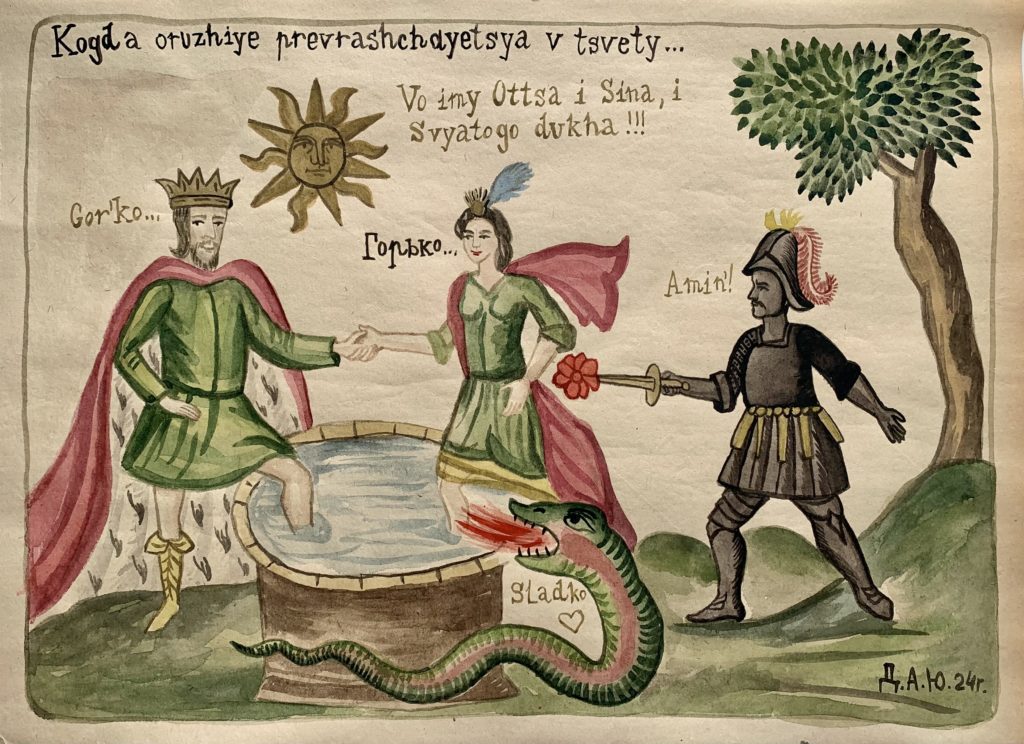 Kogda oruzhiye prevrashchayetsya v tsvety...
Vo imy Ottsa i Sina, i
Svyatogo dukha !!!
Gor'ko...
Горько...
Amin'!
Sladko
Д.А.Ю. 24г.